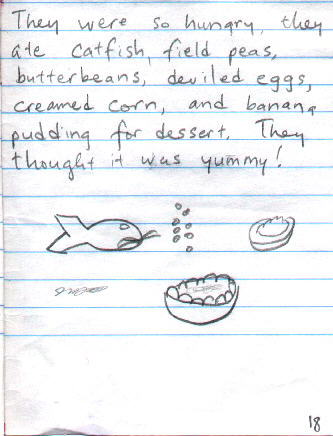 They were so hungry, they
ate catfish, field peas,
butterbeans, deviled eggs,
creamed corn, and banana
pudding for dessert. They
thought it was yummy!
18